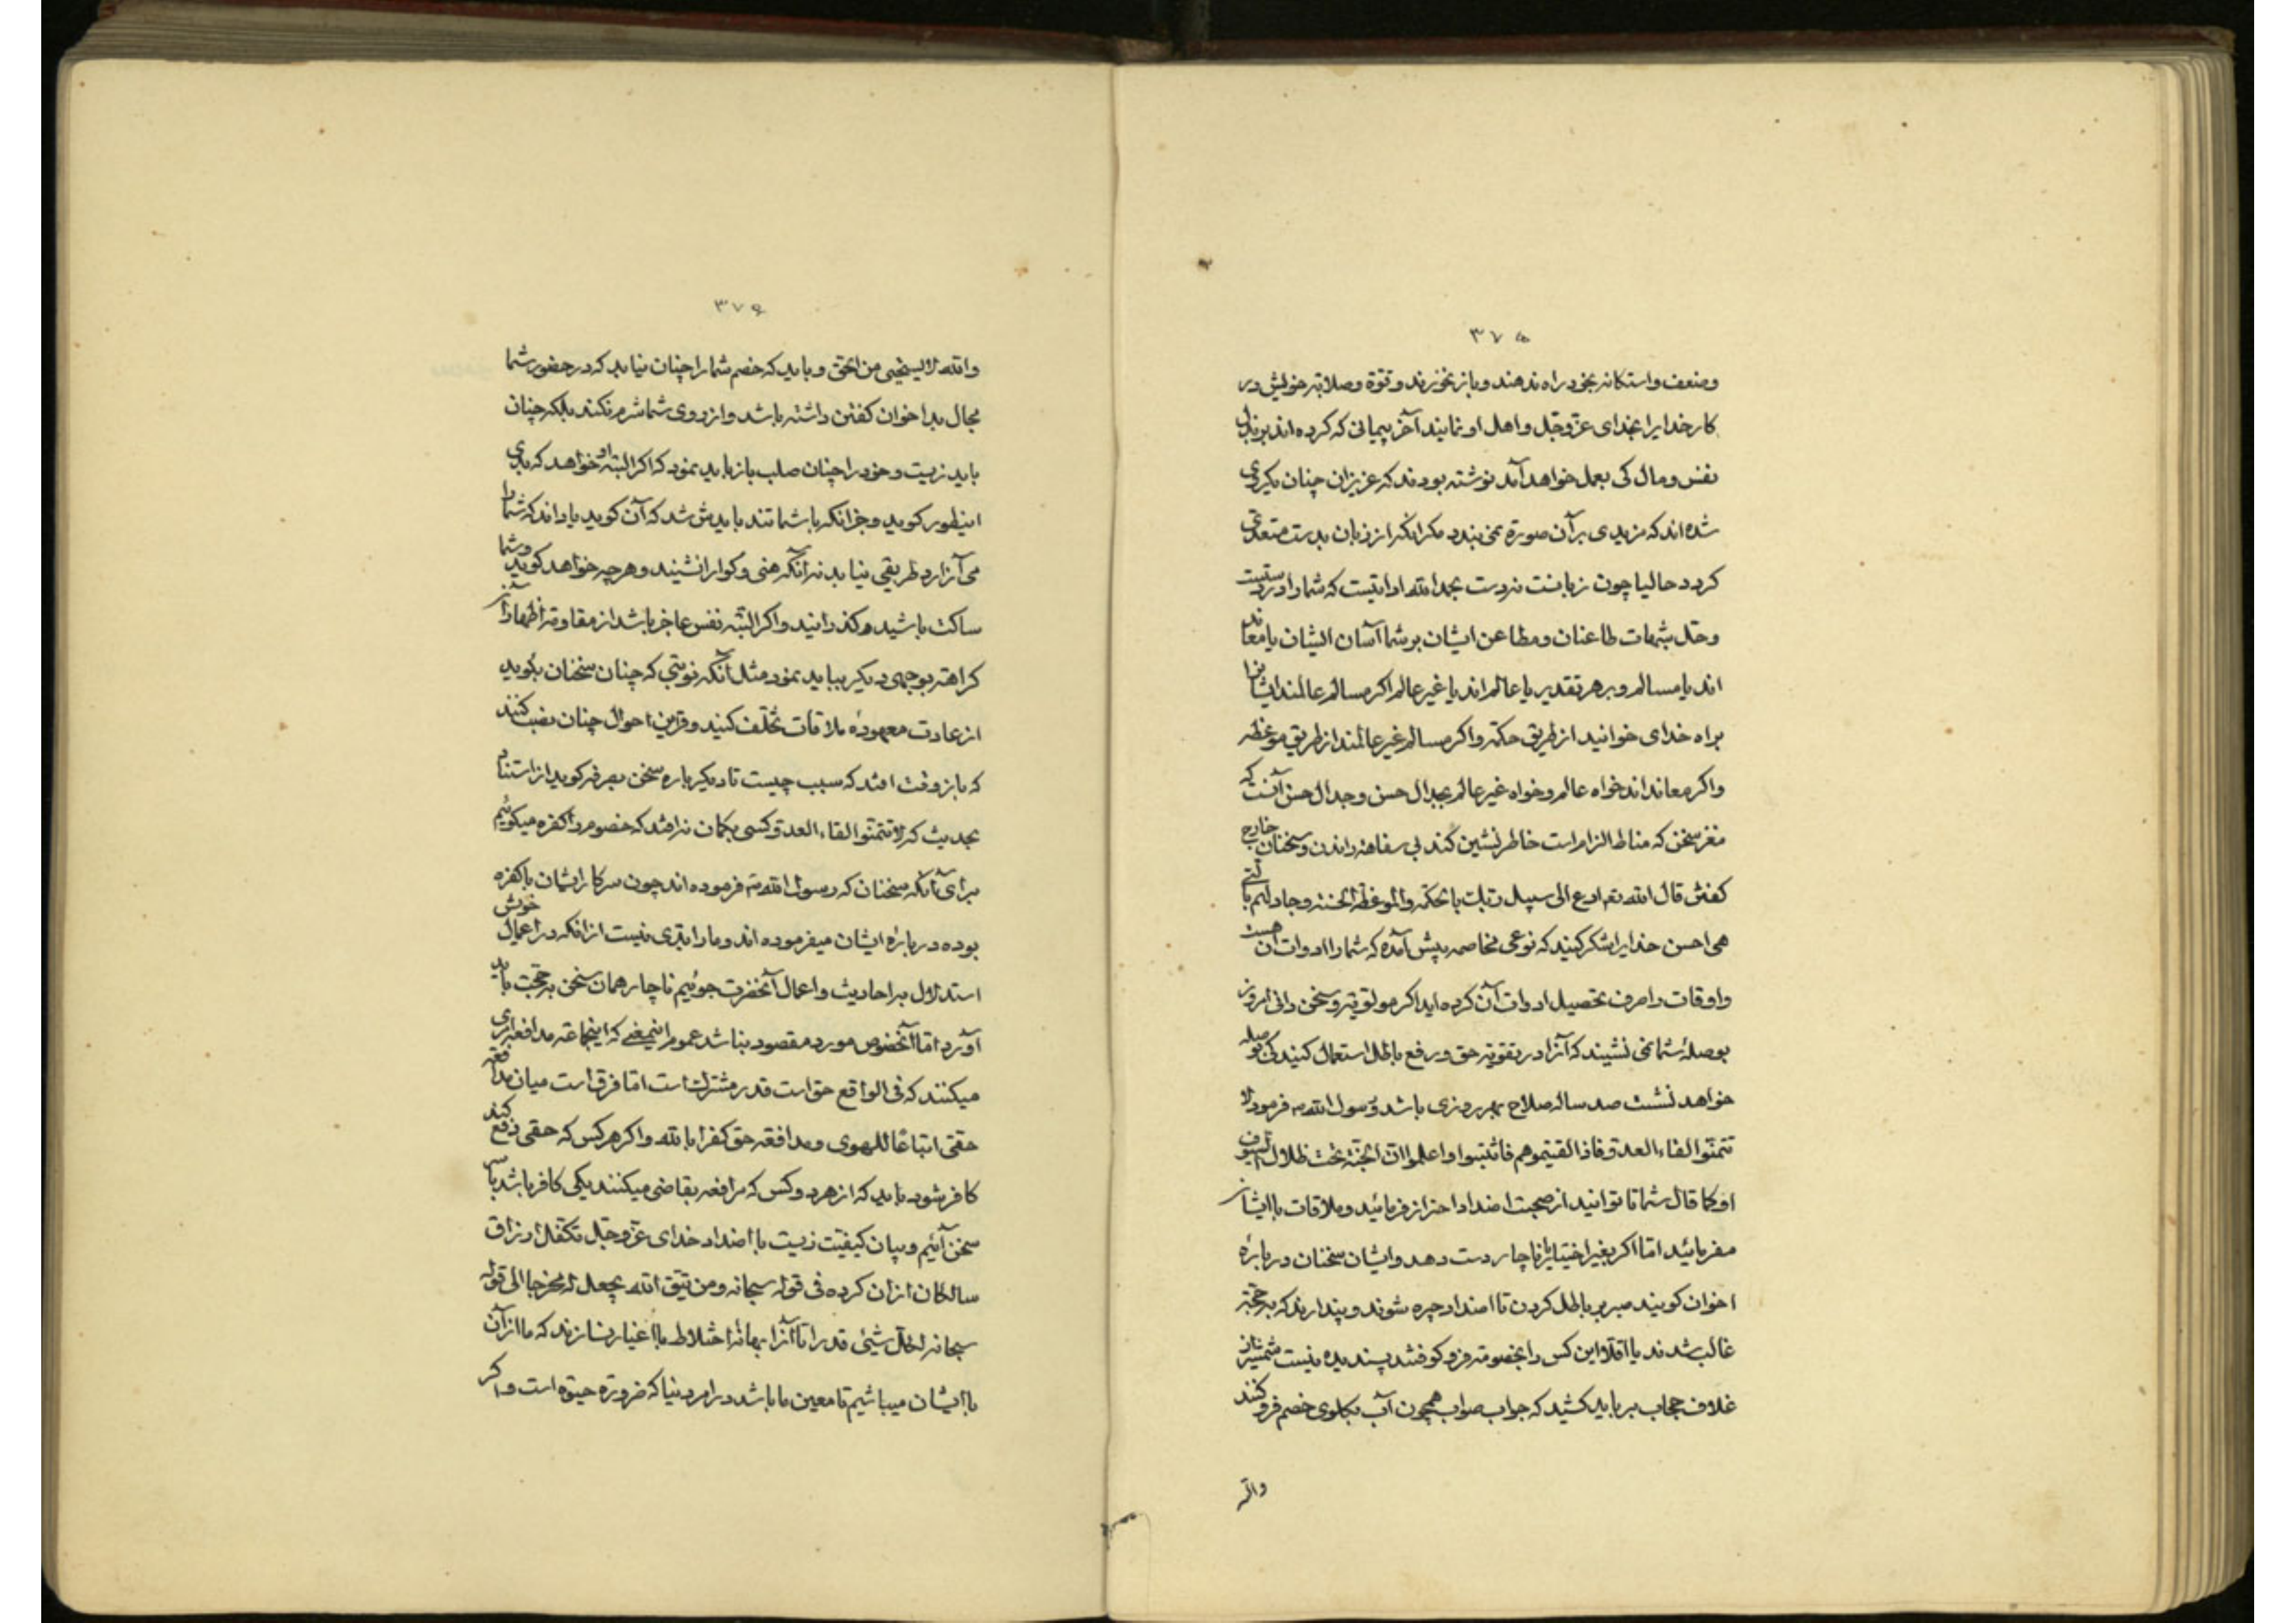 ۳۷۵
وضعف واستکانه بخود راه ندهند وباز نخورند وقوة وصلابة خویش در
کار خدایرا بخدای عزوجل واهل او نمایند آخر پیمانی که کرده اند بر بذل
نفس ومال کی بعمل خواهد آمد نوشته بودند که عزیزان چنان یکروی
شده اند که مزیدی بر آن صورة نمی بندد مکر آنکه از زبان بدست متعدی
کردد حالیا چون زبانست نه دست بحمد الله ادانیست که شما را در دستست
وحل شبهات طاعنان ومطاعن ایشان بر شما آسان ایشان یا معاند
اند یا مسالم وبر هر تقدیر یا عالم اند یا غیر عالم اکر مسالم عالمند ایشانرا
براه خدای خوانید از طریق حکمة واکر مسالم غیر عالمند از طریق موعظه
واکر معانداند خواه عالم وخواه غیر عالم بجدال حسن وجدال حسن آنست که
مغز سخن که مناط الزام است خاطر نشین کند بی سفاهة راندن وسخنان خارج
کفتن قال الله تع ادع الی سبیل ربک بالحکمة والموعظة الحسنة وجادلهم بالتی
هی احسن خدایرا شکر کنید که نوعی مخاصمه پیش آمده که شما را ادوات آن هست
واوقات را صرف تحصیل ادوات آن کرده اید اکر مولویة وسخن دانی امروز
بوصلهٔ شما نمی نشیند که آنرا در تقویة حق ورفع باطل استعمال کنید کی بوصله
خواهد نشست صد ساله صلاح بهر روزی باشد رسول الله ص فرمود لا
تتمنوا لقاء العدو فاذا لقیتموهم فاثبتوا واعلموا ان الجنة تحت ظلال السیوف
او کما قال شما تا توانید از صحبت اضداد احتراز فرمائید وملاقات با ایشان
مفرمائید اما اکر بغیر اختیار ناچار دست دهد وایشان سخنان در بارهٔ
اخوان کویند صبر بر باطل کردن تا اضداد چیره شوند وپندارند که بحجة
غالب شدند یا اقلا این کس را بخصومة فرو کوفتند پسندیده نیست شمشیر از
غلاف حجاب بر باید کشید که جواب صواب همچون آب بکلوی خصم فرو کنند
والله
۳۷۶
والله لا یستحیی من الحق وباید که خصم شما را چنان نیابد که در حضور شما
مجال بد اخوان کفتن داشته باشد واز روی شما شرم نکند بلکه چنان
باید زیست وخود را چنان صلب باز باید نمود که اکر البته او خواهد که بدی
اینطور کوید وجز آنکه با شما تند بایدش شد که آن کوید یا داند که شما را
می آزارد طریقی نیابد نه آنکه هنی وکوارا نشیند وهر چه خواهد کوید وشما
ساکت باشید وکذرانید واکر البته نفس عاجز باشد از مقاومة اظهار آن
کراهة بوجهی دیکر بباید نمود مثل آنکه نوبتی که چنان سخنان بکوید
از عادت معهودهٔ ملاقات تخلف کنید وقراین احوال چنان نصب کنند
که باز وقت افتد که سبب چیست تا دیکر باره سخن بصرفه کوید از استناد
بحدیث که لا تتمنوا لقاء العدو کسی بکمان نه افتد که خصوم را کفره میکوئیم
برای آنکه سخنان که رسول الله ص فرموده اند چون سرکار ایشان با کفره
بوده در بارهٔ ایشان میفرموده اند وما را بدی نیست از آنکه در اعمال خویش
استدلال بر احادیث واعمال آنحضرت جوئیم ناچار همان سخن بحجت باید
آورد اما آنخصوص مورد مقصود نباشد عموم اینمعنی که اینجماعة مدافعه امری
میکنند که فی الواقع حق است قدر مشترک است اما فرق است میان مدافعه
حقی اتباعا للهوی ومدافعه حق کفرا بالله واکر هر کس که حقی دفع کند
کافر شود باید که از هر دو کس که مرافعه بقاضی میکنند یکی کافر باشد باسر
سخن آئیم وبیان کیفیت زیست با اضداد خدای عزوجل تکفل ارزاق
سالکان از آن کرده فی قوله سبحانه ومن یتق الله یجعل له مخرجا الی قوله
سبحانه لکل شیئ قدرا تا آنرا بهانهٔ اختلاط با اغیار نسازند که ما از آن
با ایشان میباشیم تا معین ما باشد در امر دنیا که ضرورة حیوة است واکر